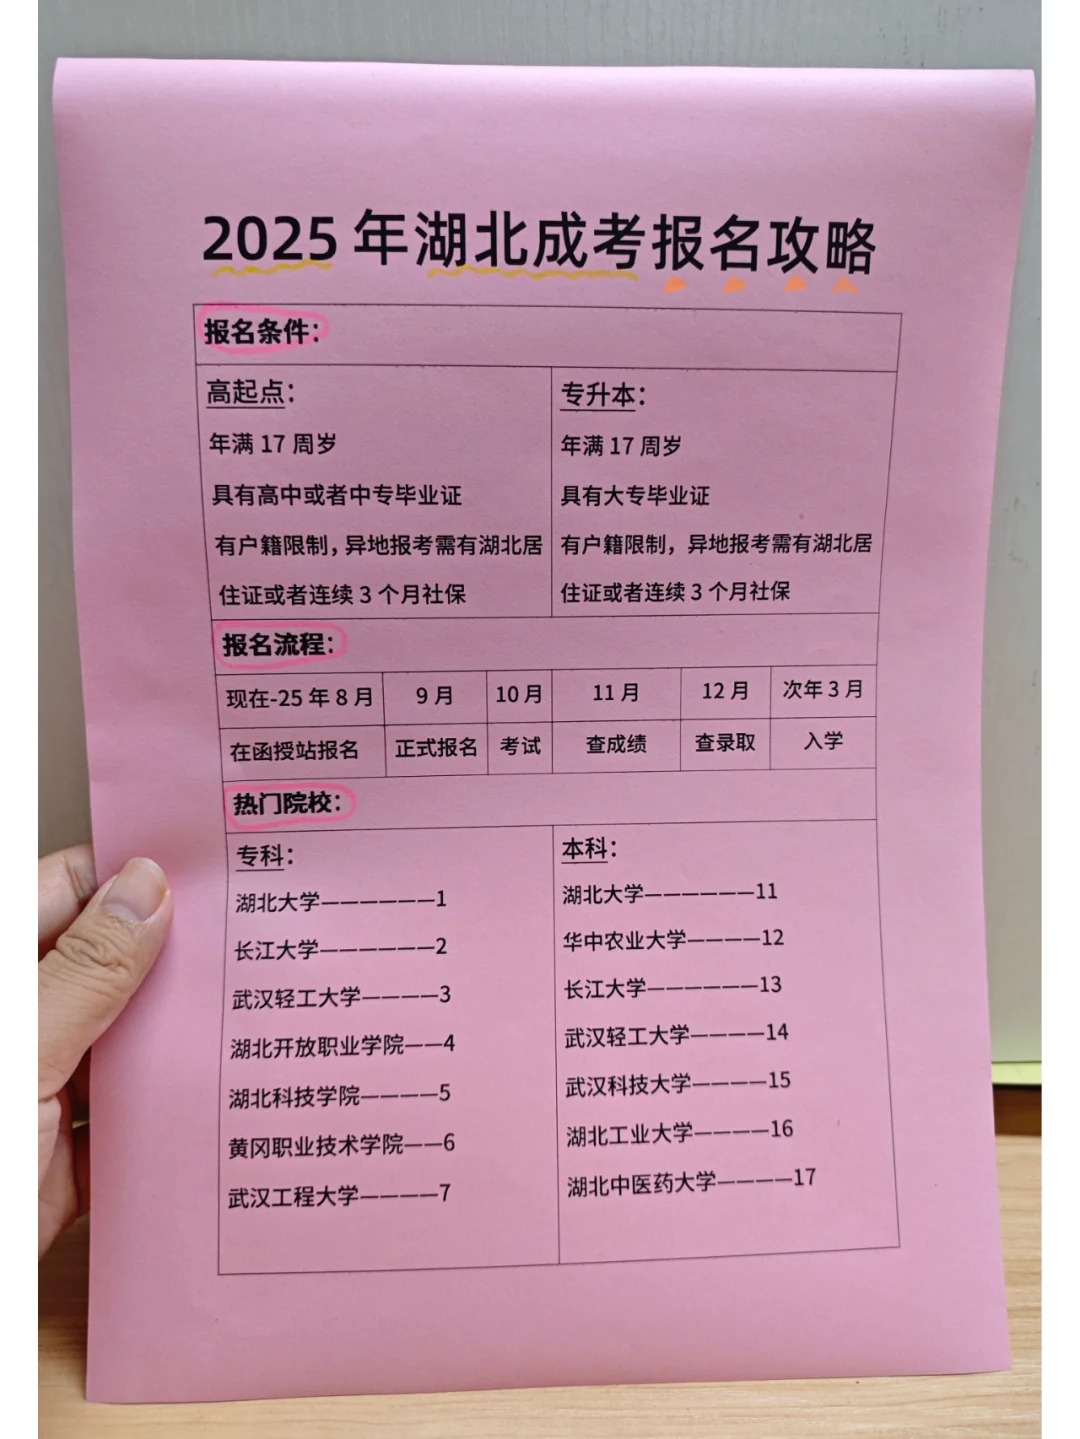 2025年湖北成考报名攻略
报名条件：
高起点：
年满 17 周岁
具有高中或者中专毕业证
有户籍限制，异地报考需有湖北居
住证或者连续 3 个月社保
专升本：
年满 17 周岁
具有大专毕业证
有户籍限制，异地报考需有湖北居
住证或者连续 3 个月社保
报名流程：
现在-25 年 8 月 9 月 10 月 11 月 12 月 次年 3 月
在函授站报名 正式报名 考试 查成绩 查录取 入学
热门院校：
专科：
湖北大学——————1
长江大学——————2
武汉轻工大学————3
湖北开放职业学院——4
湖北科技学院————5
黄冈职业技术学院——6
武汉工程大学————7
本科：
湖北大学——————11
华中农业大学————12
长江大学——————13
武汉轻工大学————14
武汉科技大学————15
湖北工业大学————16
湖北中医药大学————17